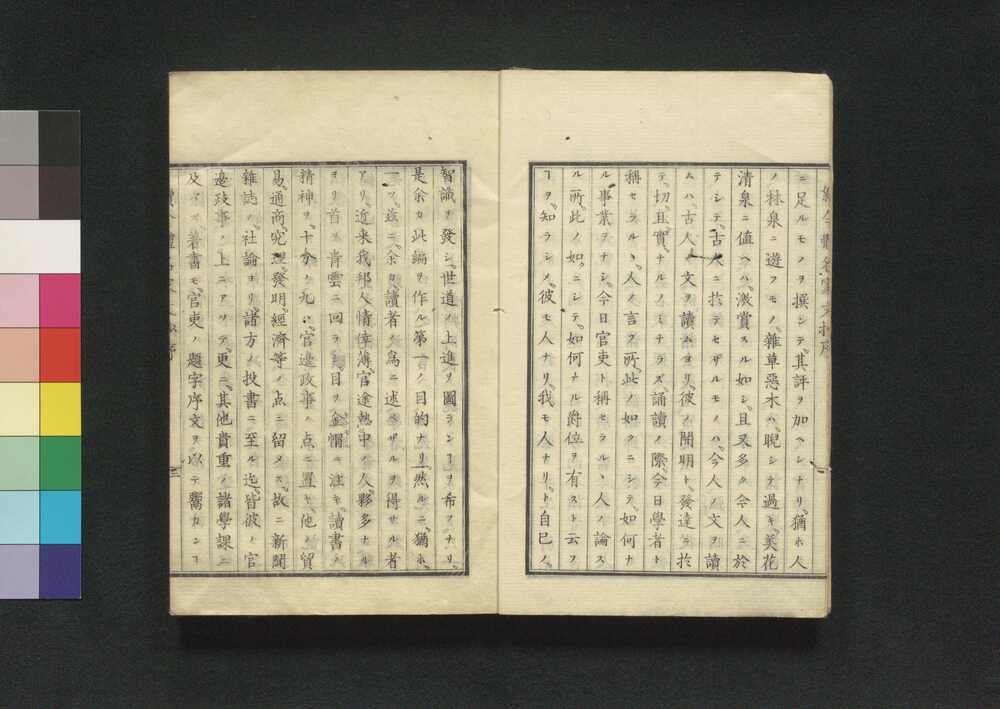 ニ足ルモノヲ撰シテ、其評ヲ加ヘシナリ、猶ホ人
ノ林泉ニ遊フモノ、雜草惡木ハ、睨シテ過キ、美花
清泉ニ値ヘハ、激賞スル如シ、且又多ク今人ニ於
テシテ、古人ニ於テセザルモノハ、今人ノ文ヲ讀
ムハ、古人ノ文ヲ讀ムヨリ、彼ノ開明ト、發達ニ於
テ、切且實ナルノミナラズ、誦讀ノ際、今日學者ト
稱セラル、人ノ言フ所、此ノ如クニシテ、如何ナ
ル事業ヲナシ、今日官吏ト稱セラル、人ノ論ス
ル所、此ノ如クニシテ、如何ナル爵位ヲ有スト云フ
ヿヲ、知ラシメ、彼モ人ナリ、我モ人ナリ、ト自己ノ
智識ヲ發シ、世道ノ上進ヲ圖ランヿヲ希フナリ、
是余カ此編ヲ作ル第一ノ目的ナリ、然ルニ、猶ホ
一ツ、茲ニ、余カ讀者ノ爲ニ述ベザルヲ得サル者
アリ、近来我邦人情
官途熱中ノ人夥多ナル
ヨリ、首ヲ青雲ニ回ラシ、目ヲ金
ニ注キ、讀書ノ
精神ヲ、十分ノ九ハ、官邊政事ノ点ニ置キ、他ノ貿
易、通商、究理、發明、經濟等ノ点ニ留メス、故ニ新聞
雜誌ノ社論ヨリ、諸方ノ投書ニ至ル迄、皆彼ノ官
邊政事ノ上ニアリテ、更ニ、其他貴重ノ諸學課ニ
及ハズ、著書モ、官吏ノ題字序文ヲ以テ鬻カンヿ